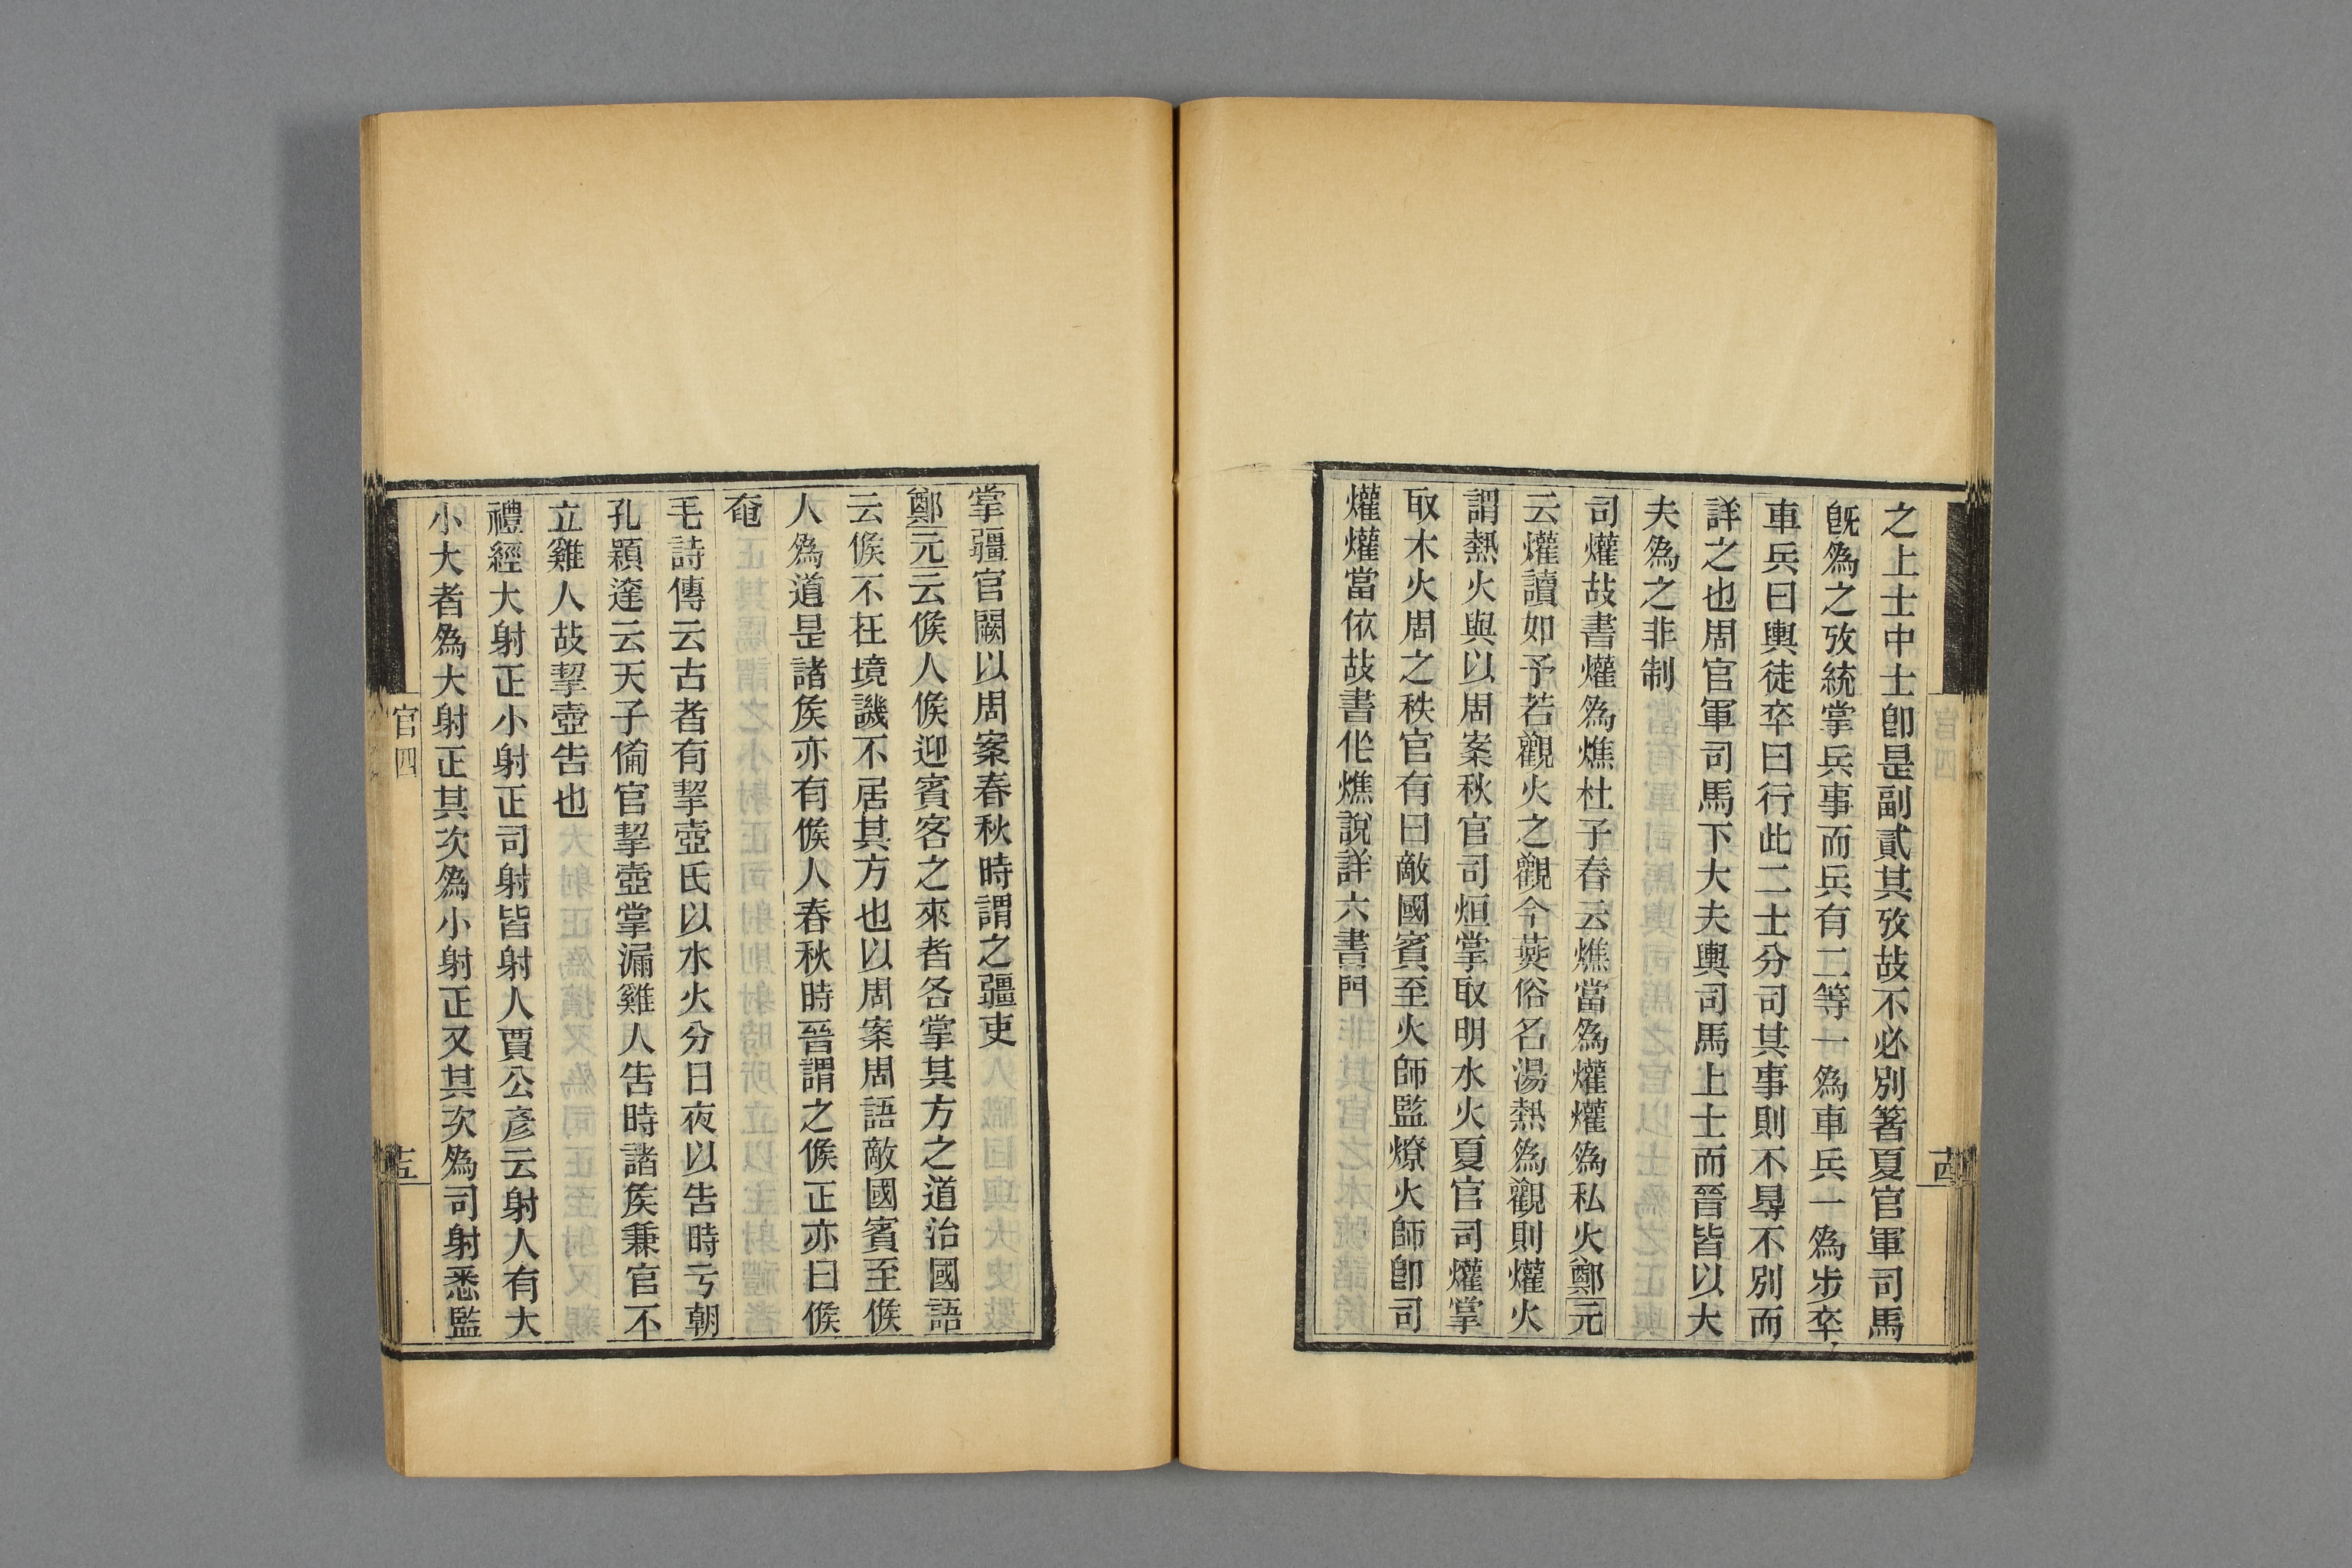 之上士中士卽是副貳其攷故不必別箸夏官軍司馬
旣爲之攷統掌兵事而兵有二等一爲車兵一爲步卒
車兵曰輿徒卒曰行此二士分司其事則不㝵不別而
詳之也周官軍司馬下大夫輿司馬上士而晉皆以大
夫爲之非制
司爟故書爟爲燋杜子春云燋當爲爟爟爲私火鄭元
云爟讀如予若觀火之觀今燕俗名湯熱爲觀則爟火
謂熱火與以周案秋官司烜掌取明水火夏官司爟掌
取木火周之秩官有曰敵國賓至火師監燎火師卽司
爟爟當依故書作燋說詳六書門
掌疆官闕以周案春秋時謂之疆吏
鄭元云候人候迎賓客之來者各掌其方之道治國語
云候不在境譏不居其方也以周案周語敵國賓至候
人爲道是諸矦亦有候人春秋時晉謂之候正亦曰候
奄
毛詩傳云古者有挈壺氏以水火分日夜以告時亏朝
孔穎達云天子備官挈壺掌漏雞人告時諸矦兼官不
立雞人故挈壺告也
禮經大射正小射正司射皆射人賈公彥云射人有大
小大者爲大射正其次爲小射正又其次爲司射悉監
官四
十五
官四
十四